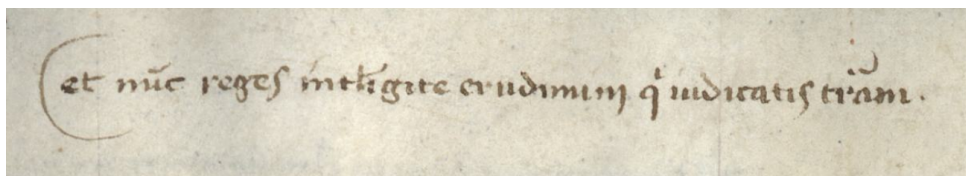 et nūc reges intl̄igite erudimini qͥ iudicatis trām.